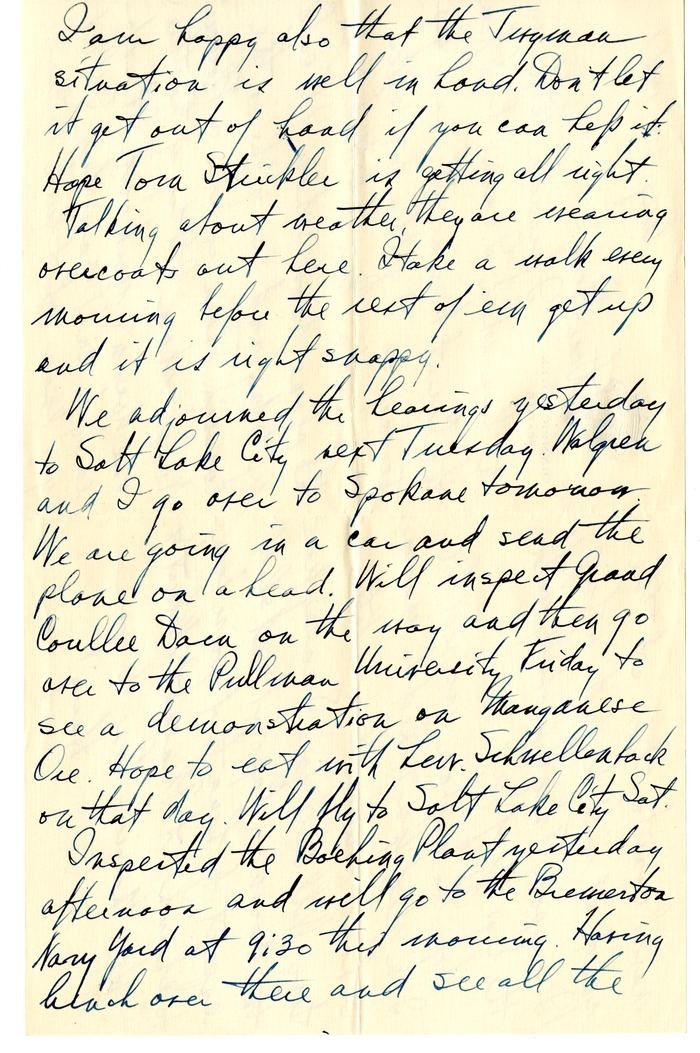 I am happy also that the Twyman
situation is well in hand. Don't let
it get out of hand if you can help it.
Hope Tom Strickler is getting all right.
Talking about weather, they are wearing
overcoats out here. I take a walk every
morning before the rest of 'em get up
and it is right snappy.
We adjourned the hearings yesterday
to Salt Lake City next Tuesday. Walgren
and I go over to Spokane tomorrow.
We are going in a car and send the
plane on ahead. Will inspect Grand
Coullee Dam on the way and then go
over to the Pullman University Friday to
see a demonstration on Manganese
Ore. Hope to eat with Lew. Schwellenback
on that day. Will fly to Salt Lake City Sat.
Inspected the Boehing Plant yesterday
afternoon and will go to the Bremerton
Navy Yard at 9:30 this morning. Having
lunch over there and see all the